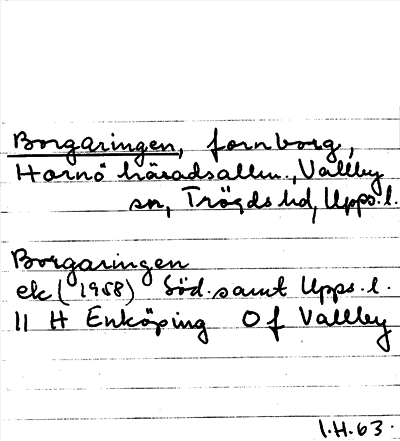 Borgaringen, fornborg,
Harnö häradsallm., Vallby
sn, Trögds hd, Upps. l.
Borgaringen
ek (1958) Söd. samt Upps. l.
11 H Enköping O f Vallby
I.H. 63.